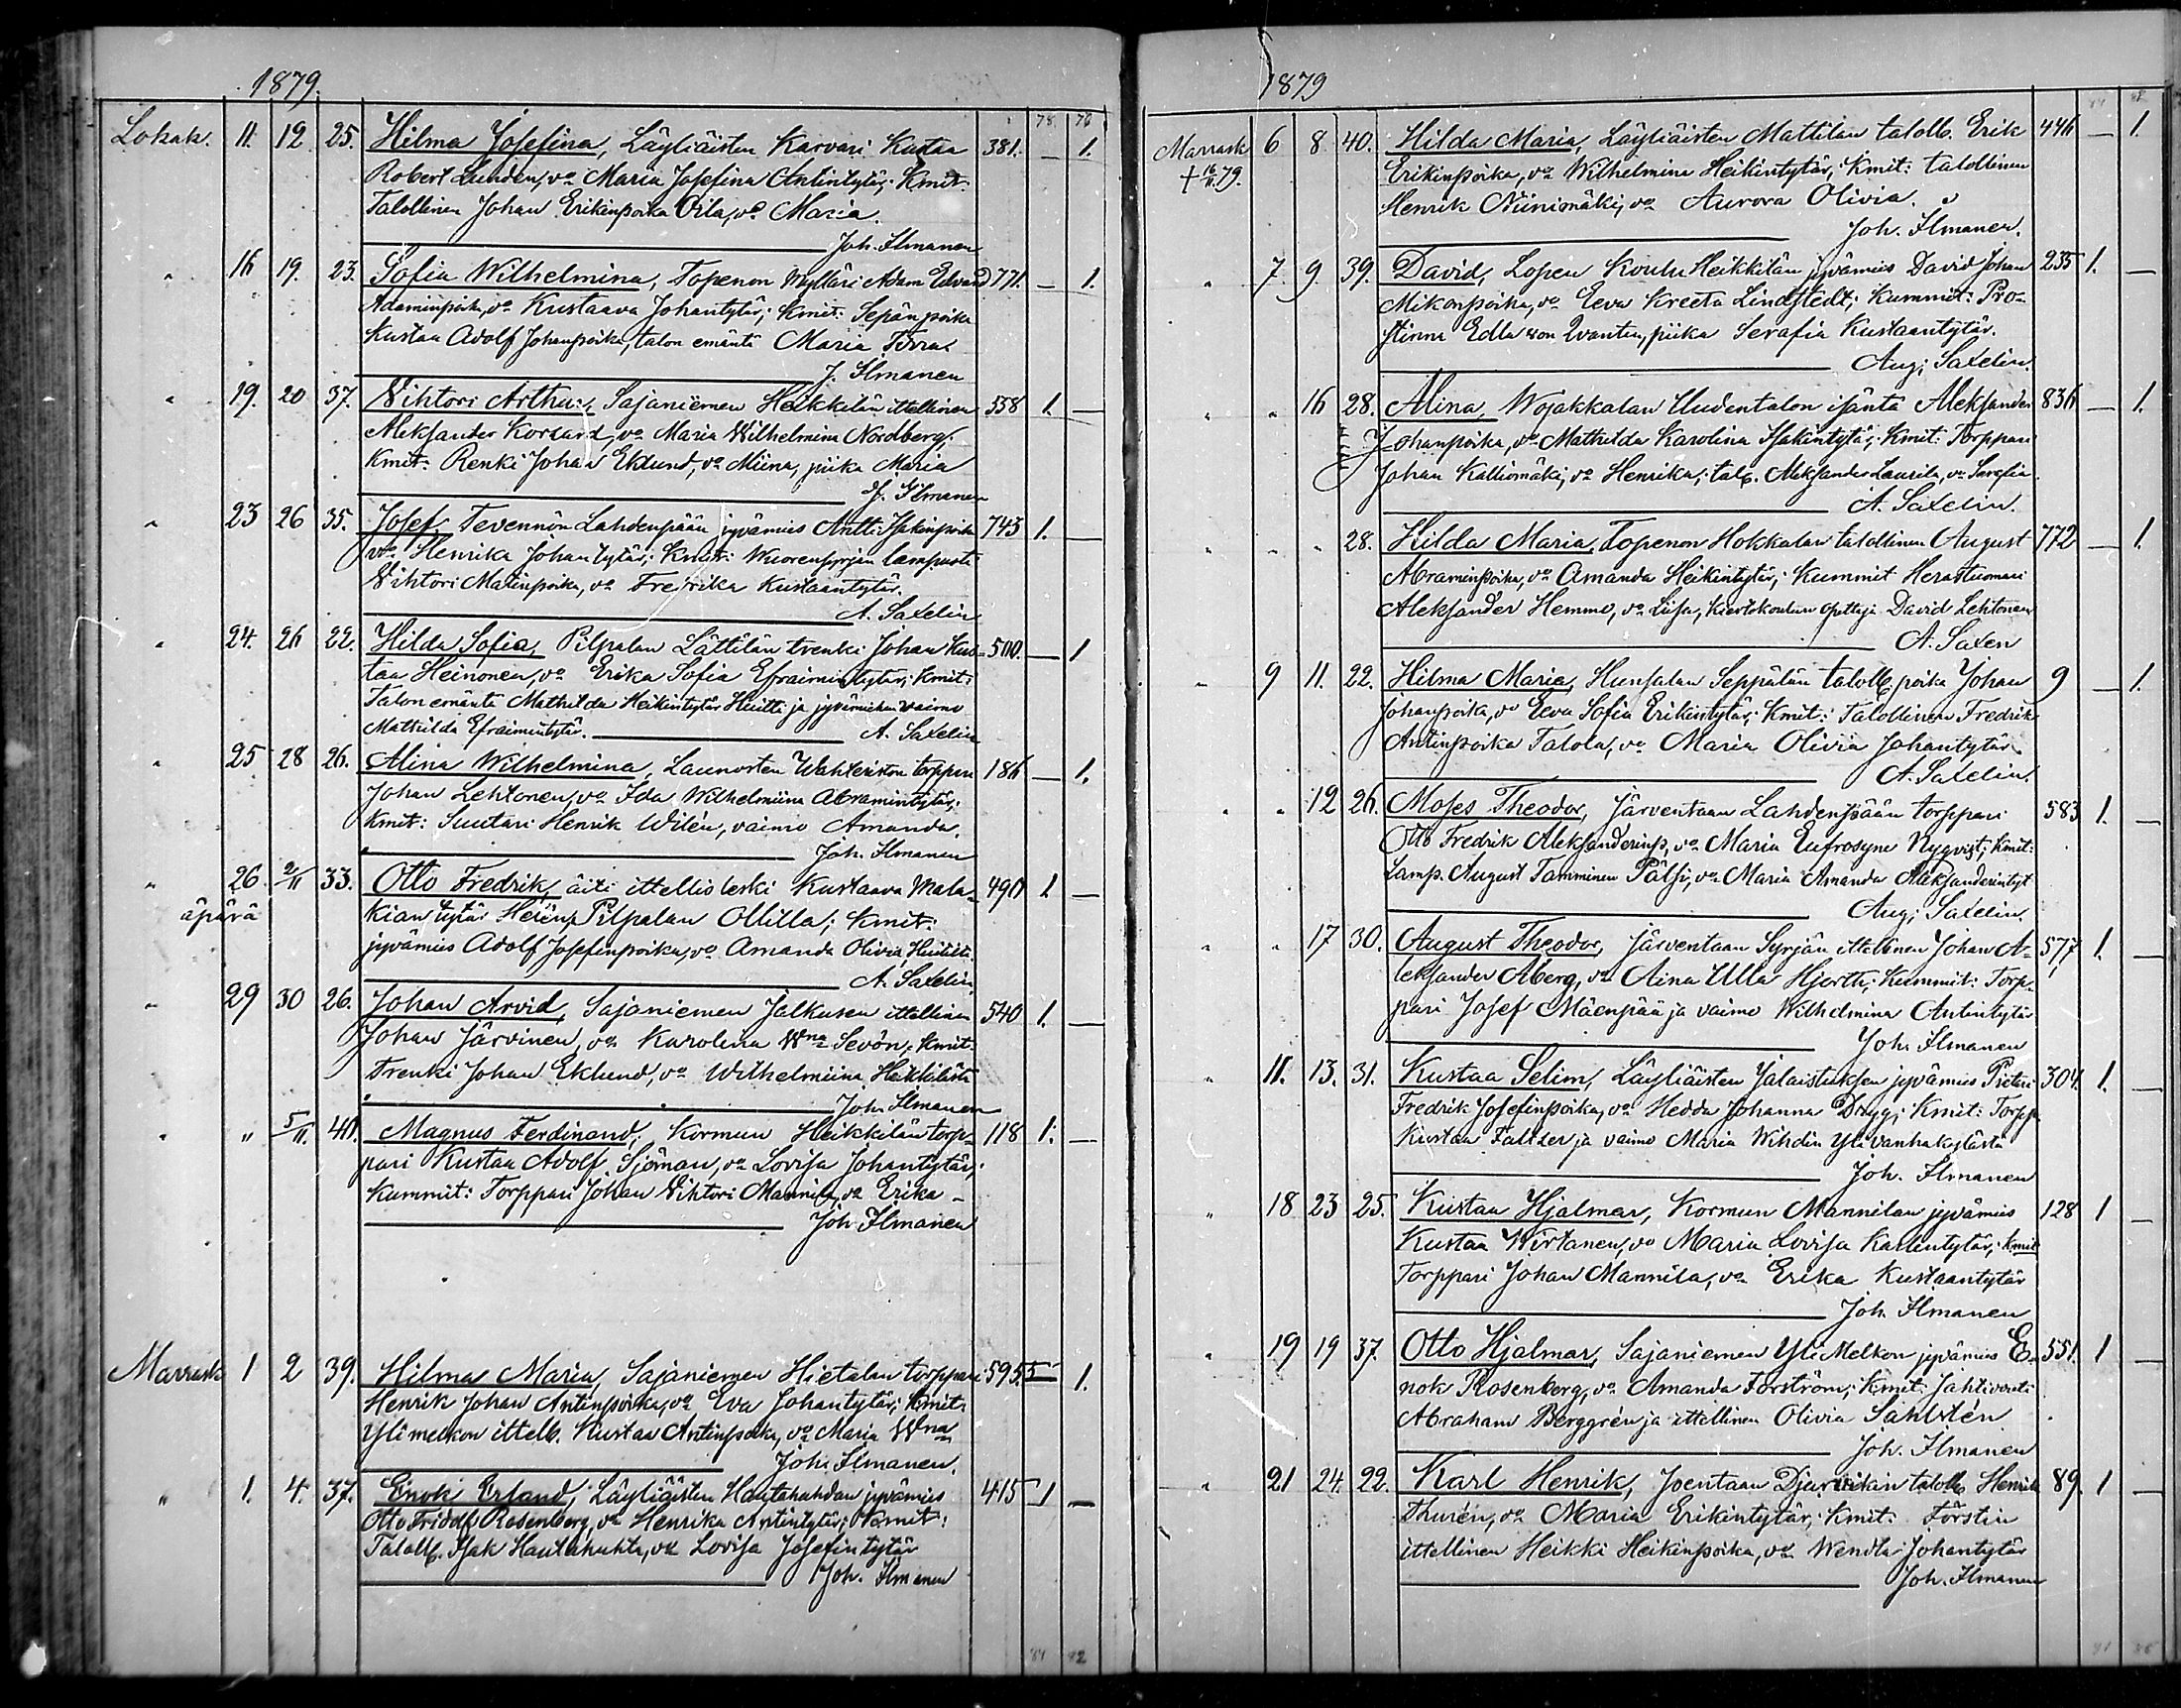 1879.
78 76
Lokak. 11. 12 25. Hilma Josefina, Läyliäisten Karvari Kustaa 381. — 1.
Robert Lunden, va Maria Josefina Antintytär; Kmit:
Talollinen Johan Erikinpoika Oila, va Maria.
Joh. Ilmanen
" 16 19. 23. Sofia Wilhelmina, Topenon Mylläri Adam Edvard 771. — 1.
Adaminpoika, va Kustaava Johantytär; Kmit: Sepänpoika
Kustaa Adolf Johanpoika, talon emäntä Maria
J. Ilmanen
" 19. 20 37. Vihtori Arthur, Sajaniemen Heikkilän ittellinen 558 1. —
Aleksander Korsard, va Maria Wilhelmina Nordberg;
Kmit: Renki Johan Eklund, va Miina, piika Maria
J. Ilmanen
" 23 26 35. Josef, Tevennön Lahdenpään jyvämies Antti Isakinpoika 743 1. —
va Henrika Johantytär; Kmit: Wuorenpyrjän lampuoti
Vihtori Matinpoika, va Fredrika Kustaantytär.
A. Saxelin
" 24. 26 22. Hilda Sofia, Pilpalan Lättilän trenki Johan Kus- 500. — 1
taa Heinonen, va Erika Sofia Efraimintytär; Kmit:
Talon emäntä Mathilda Heikintytär Huitti ja jyvämiehen vaimo
Mathilda Efraimintytär. A. Saxelin
" 25 28 26. Alina Wilhelmina, Launosten Wahteriston torppari 186 — 1.
Johan Lehtonen, va Ida Wilhelmiina Abramintytär;
Kmit: Suutari Henrik Wilén, vaimo Amanda.
Joh. Ilmanen
" 26. 2/11 33. Otto Fredrik, äiti ittellis leski Kustaava Mala- 490 1. —
äpärä kian tytär Herén, Pilpalan Ollilla; Kmit:
jyvämies Adolf Josefinpoika, va Amanda Olivia,
A. Saxelin
" 29 30 26. Johan Arvid, Sajaniemen Jalkusen ittellinen 540 1. —
Johan Järvinen, va Karolina Wna Sevón; Kmit:
Trenki Johan Eklund, va Wilhelmiina Heikkilästä
Joh. Ilmanen
" " 5/11. 40. Magnus Ferdinand, Kormun Heikkilän torp- 118 1. —
pari Kustaa Adolf Sjöman, va Lovisa Johantytär;
Kummit: Torppari Johan Vihtori Mannila, va Erika —
Joh Ilmanen
Marrask 1 2 39. Hilma Maria, Sajaniemen Hietalan torppari 595. — 1.
Henrik Johan Antinpoika, va Eva Johantytär; Kmit:
Ylimelkon ittell. Kustaa Antinpoika, va Maria Wna
Joh. Ilmanen.
" 1. 4. 37. Enok Erland, Läyliäisten Hautahuhdan jyvämies 415 1 —
Otto Fridolf Rosenberg, va Henrika Antintytär; Kmit:
Taloll. Isak Hautahuhta, va Lovisa Josefintytär
Joh. Ilmanen
1879
Marrask 6 8 40. Hilda Maria, Läyliäisten Mattilan taloll. Erik 446 — 1.
+ 16/11 79. Erikinpoika, va Wilhelmina Heikintytär; Kmit: talollinen
Henrik Niinimäki, va Aurora Olivia.
Joh. Ilmanen.
" 7. 9. 39. David, Lopen Koulu Heikkilän jyvämies David Johan 235 1. —
Mikonpoika, va Eeva Kreeta Lindstedt; Kummit: Pro-
stinna Edla von Qvanten, piika Serafia Kustaantytär.
Aug. Saxelin.
" " 16 28. Alina, Wojakkalan Uudentalon isäntä Aleksander 836 — 1.
Johanpoika, va Mathilda Karolina Isakintytär; Kmit: Torppari
Johan Kalliomäki, va Henrika; talp. Aleksander Laurila, va Serafia.
A. Saxelin.
" " " 28. Hilda Maria, Topenon Hokkalan talollinen August 772 — 1.
Abraminpoika, va Amanda Heikintytär; Kummit Herastuomari
Aleksander Hemmo, va Liisa, Kiertokoulun opettaja David Lehtonen
A. Saxen
" 9 11. 22. Hilma Maria, Hunsalan Seppälän taloll. poika Johan 9 — 1.
Johanpoika, va Eeva Sofia Erikintytär; Kmit: Talollinen Fredrik
Antinpoika Talola, va Maria Olivia Johantytär
A. Saxelin.
" " 12 26. Moses Theodor, Järventaan Lahdenpään torppari 583 1. —
Otto Fredrik Aleksanderinp, va Maria Eufrosyne Nyqvist; Kmit:
Lamp. August Tamminen Pälsi, va Maria Amanda Aleksanderintyt
Aug. Saxelin.
" " 17 30. August Theodor, Järventaan Syrjän ittellinen Johan A- 577 1. —
leksander Åberg, va Aina Ulla Hjorth; Kummit: Torp-
pari Josef Mäenpää ja vaimo Wilhelmina Antintytär
Joh. Ilmanen
" 11. 13. 31. Kustaa Selim, Läyliäisten Jalaistuksen jyvämies Pietari 304. 1. —
Fredrik Josefinpoika, va Hedda Johanna Drygg; Kmit: Torpp.
Kustaa Faltter ja vaimo Maria Wihdin Ylivanhakylästä
Joh. Ilmanen
" 18 23 25. Kustaa Hjalmar, Kormun Mannilan jyvämies 128 1 —
Kustaa Wirtanen, va Maria Lovisa Karlintytär; Kmit
Torppari Johan Mannila, va Erika Kustaantytär
Joh. Ilmanen
" 19 19 37. Otto Hjalmar, Sajaniemen Yli Melkon jyvämies E- 551. 1 —
nok Rosenberg, va Amanda Forström; Kmit: Jahtivouti
Abraham Berggrén ja ittellinen Olivia Sahlstén
Joh. Ilmanen
" 21 24. 22. Karl Henrik, Joentaan taloll. Henrik 89. 1 —
Thurén, va Maria Erikintytär; Kmit: Förstin
ittellinen Heikki Heikinpoika, va Wendla Johantytär
Joh. Ilmanen